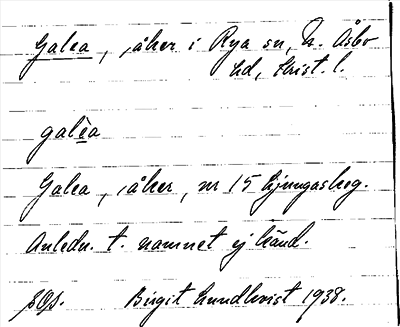 Galea, åker i Rya sn, N. Åsbo
hd, Krist. l.
galèa
Galea, åker, nr 15 Ljungaskog.
Anledn. t. namnet ej känd.
Birgit Lundkvist 1938.